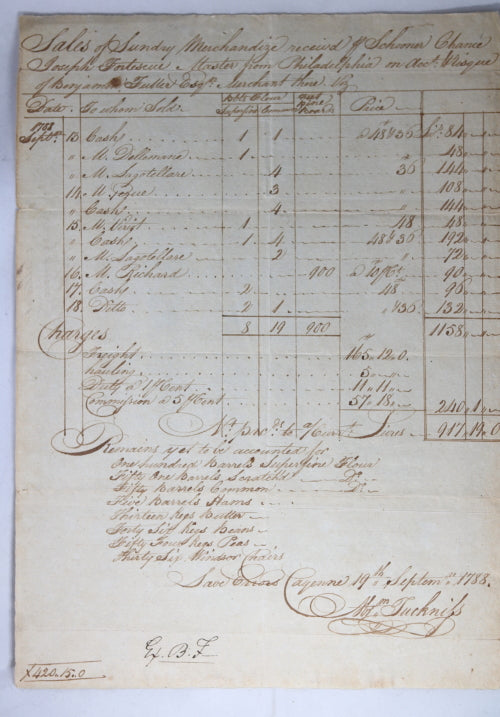 Sales of Sundry Merchandize received ℔ Schooner Chance
Joseph Fortescue Master from Philadelphia on Acct. & Risque
of Benjamin Fuller Esqr. Merchant there Viz
Date. To whom Sold. Bbls Flour Superfine Common feet Pine Boards Price
1788
Septr. 13 Cash 1 1 a 48 & 36 Lrs. 84
" M. Dellemane 1 48
" M. Lagotellare 4 36 144
14 M. 3 " 108
" Cash 4 " 144
15 M. 1 48 48
" Cash 1 4 48 & 36 192
" M. Lagotellare 2 " 72
16 M. Richard 900 a 90
17 Cash 2 48 96
18 Ditto 2 1 " & 36 132
8 19 900 1158
Charges
Freight 165 " 12 " 0
hauling 5
Duty a 1 ℔ Cent 11 " 11 "
Commission a 5 ℔ Cent 57 " 18 " 240 " 1
Nt. proceeds to a/Curt. Livres 917 " 19 " 0
Remains yet to be accounted for
One hundred Barrels Superfine Flour
Fifty One Barrels Scratch'd Do.
Fifty Barrels Common Do.
Five Barrels Hams
Thirteen Kegs Butter
Forty Six Kegs Beans
Fifty Four Kegs Peas
Thirty Six Windsor Chairs
Save Errors Cayenne 19th Septemr. 1788.
Tuckniss
Ex. B. F
£420.15.0